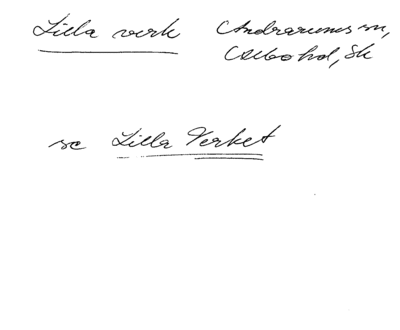 Lilla verk Andrarums sn,
Albo hd, Sk
se Lilla Verket